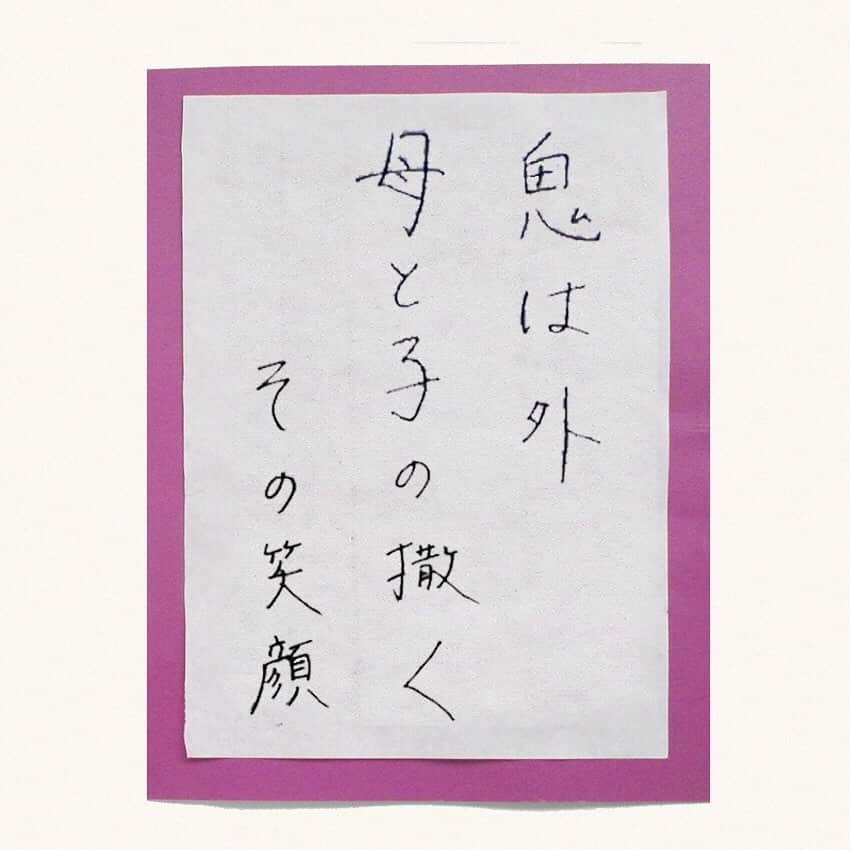 鬼は外
母と子の撒く
その笑顔